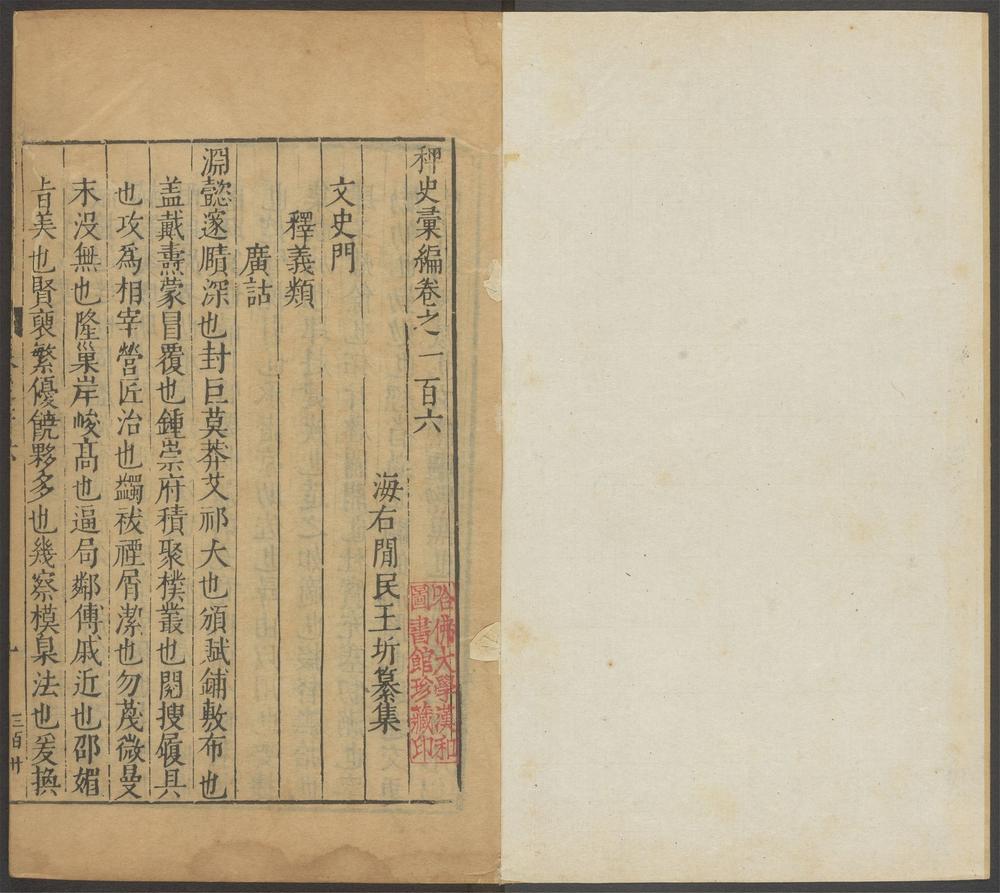 稗史彙編卷之一百六
海右閒民王圻纂集
文史門
釋義類
廣詁
淵懿邃賾深也封巨莫莽艾祁大也頒賦鋪敷布也
盖戴燾蒙冒覆也鍾崇府積聚樸叢也閱搜履具
也攻爲相宰營匠治也蠲祓禋屑潔也勿蔑微曼
末没無也隆巢岸峻髙也逼局鄰傅戚近也卲媚
旨美也賢裒繁優饒夥多也幾察模臬法也爰換
哈佛大學漢和
圖書館珍藏印
三百卅